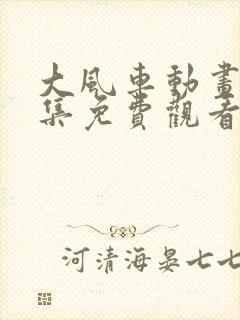 大風車動畫
集免費觀看
河清海晏七七